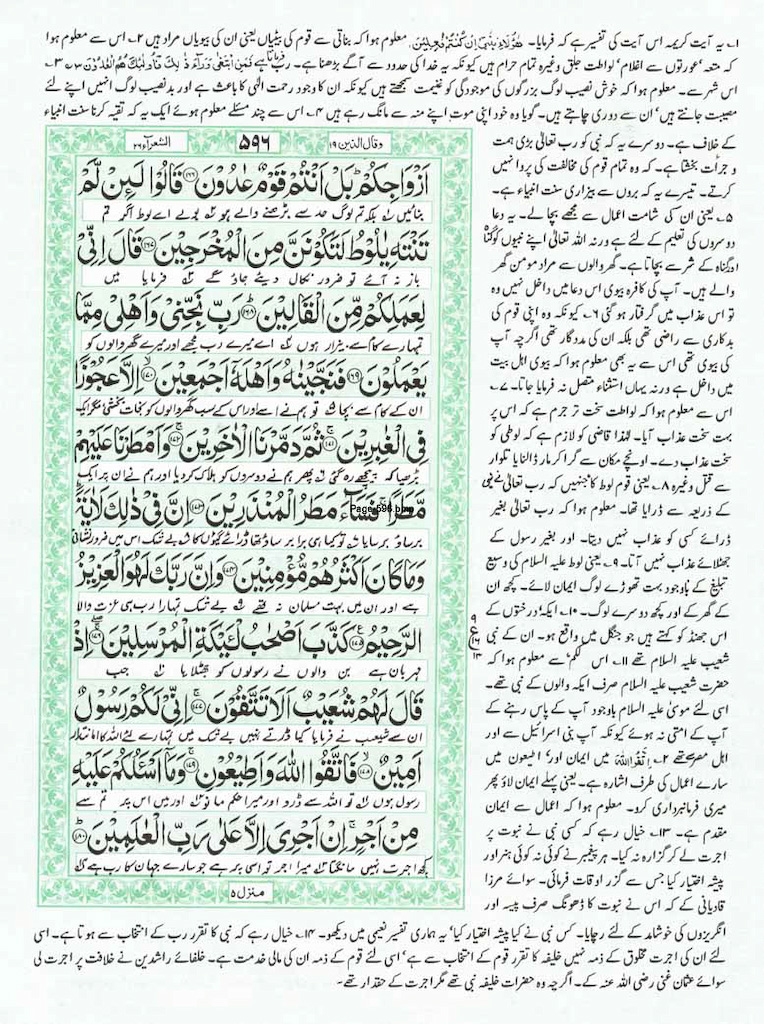 ۱؎ یہ آیت کریمہ اس آیت کی تفسیر ہے کہ فرمایا۔ هٰٓؤُلَآءِ بَنٰتِیْۤ اِنْ كُنْتُمْ فٰعِلِیْنَ، معلوم ہوا کہ بناتی سے قوم کی بیٹیاں یعنی ان کی بیویاں مراد ہیں ۲؎ اس سے معلوم ہوا
کہ متعہ 'عورتوں سے اغلام' لواطت جلق وغیرہ تمام حرام ہیں کیونکہ یہ خدا کی حدود سے آگے بڑھنا ہے۔ رب فرماتا ہے فَمَنِ ابْتَغٰى وَرَآءَ ذٰلِكَ فَاُولٰٓئِكَ هُمُ الْعٰدُوْنَ ۳؎
اس شہر سے۔ معلوم ہوا کہ خوش نصیب لوگ بزرگوں کی موجودگی کو غنیمت سمجھتے ہیں کیونکہ ان کا وجود رحمت الٰہی کا باعث ہے اور بدنصیب لوگ انہیں اپنے لئے
مصیبت جانتے ہیں' ان سے دوری چاہتے ہیں۔ گویا وہ خود اپنی موت اپنے منہ سے مانگ رہے ہیں ۴؎ اس سے چند مسئلے معلوم ہوئے ایک یہ کہ تقیہ کرنا سنت انبیاء
کے خلاف ہے۔ دوسرے یہ کہ نبی کو رب تعالیٰ بڑی ہمت
و جرأت بخشتا ہے۔ کہ وہ تمام قوم کی مخالفت کی پروا نہیں
کرتے۔ تیسرے یہ کہ بروں سے بیزاری سنت انبیاء ہے۔
۵؎ یعنی ان کی شامت اعمال سے مجھے بچا لے۔ یہ دعا
دوسروں کی تعلیم کے لئے ہے ورنہ اللہ تعالیٰ اپنے نبیوں کو گناہ
اور گناہ کے شر سے بچاتا ہے۔ گھر والوں سے مراد مومن گھر
والے ہیں۔ آپ کی کافرہ بیوی اس دعا میں داخل نہیں وہ
تو اس عذاب میں گرفتار ہو گئی ۶؎ کیونکہ وہ اپنی قوم کی
بدکاری سے راضی تھی بلکہ ان کی مددگار تھی اگرچہ آپ
کی بیوی تھی اس سے یہ بھی معلوم ہوا کہ بیوی اہل بیت
میں داخل ہے ورنہ یہاں استثناء متصل نہ فرمایا جاتا۔ ۷؎
اس سے معلوم ہوا کہ لواطت سخت تر جرم ہے کہ اس پر
بہت سخت عذاب آیا۔ لہٰذا قاضی کو لازم ہے کہ لوطی کو
سخت عذاب دے۔ اونچے مکان سے گرا کر مار ڈالنا یا تلوار
سے قتل وغیرہ ۸؎ یعنی قوم لوط کا جنہیں کہ رب تعالیٰ نے نبی
کے ذریعہ سے ڈرایا تھا۔ معلوم ہوا کہ رب تعالیٰ بغیر
ڈرائے کسی کو عذاب نہیں دیتا۔ اور بغیر رسول کے
جھٹلائے عذاب نہیں آتا۔ ۹؎ یعنی لوط علیہ السلام کی وسیع
تبلیغ کے باوجود بہت تھوڑے لوگ ایمان لائے۔ کچھ ان
کے گھر کے اور کچھ دوسرے لوگ۔ ۱۰؎ ایکہ' درختوں کے
اس جھنڈ کو کہتے ہیں جو جنگل میں واقع ہو۔ ان کے نبی
شعیب علیہ السلام تھے ۱۱؎ اس لکم' سے معلوم ہوا کہ
حضرت شعیب علیہ السلام صرف ایکہ والوں کے نبی تھے۔
اسی لئے موسیٰ علیہ السلام باوجود آپ کے پاس رہنے کے
آپ کے امتی نہ ہوئے کیونکہ آپ بنی اسرائیل سے اور
اہل مصر سے تھے ۱۲؎ اِتَّقُوا اللّٰهَ میں ایمان اور' اطیعون میں
سارے اعمال کی طرف اشارہ ہے۔ یعنی پہلے ایمان لاؤ پھر
میری فرمانبرداری کرو۔ معلوم ہوا کہ اعمال سے ایمان
مقدم ہے۔ ۱۳؎ خیال رہے کہ کسی نبی نے نبوت پر
اجرت لے کر گزارہ نہ کیا۔ ہر پیغمبر نے کوئی نہ کوئی ہنر اور
پیشہ اختیار کیا جس سے گزر اوقات فرمائی۔ سوائے مرزا
قادیانی کے کہ اس نے نبوت کا ڈھونگ صرف پیسہ اور
وقال الذین ۱۹
۵۹۶
الشعرآء ۲۶
اَزْوَاجِكُمْ ؕ بَلْ اَنْتُمْ قَوْمٌ عٰدُوْنَ ﴿۱۶۶﴾ قَالُوْا لَىِٕنْ لَّمْ
بنائیں بلکہ تم لوگ حد سے بڑھنے والے ہو بولے اے لوط اگر تم
تَنْتَهِ یٰلُوْطُ لَتَكُوْنَنَّ مِنَ الْمُخْرَجِیْنَ ﴿۱۶۷﴾ قَالَ اِنِّیْ
باز نہ آئے تو ضرور نکال دیئے جاؤ گے فرمایا میں
لِعَمَلِكُمْ مِّنَ الْقَالِیْنَ ﴿۱۶۸﴾ رَبِّ نَجِّنِیْ وَ اَهْلِیْ مِمَّا
تمہارے کام سے بیزار ہوں اے میرے رب مجھے اور میرے گھر والوں کو
یَعْمَلُوْنَ ﴿۱۶۹﴾ فَنَجَّیْنٰهُ وَ اَهْلَهٗۤ اَجْمَعِیْنَ ﴿۱۷۰﴾ اِلَّا عَجُوْزًا
ان کے کام سے بچا تو ہم نے اسے اور اس کے سب گھر والوں کو نجات بخشی مگر ایک
فِی الْغٰبِرِیْنَ ﴿۱۷۱﴾ ثُمَّ دَمَّرْنَا الْاٰخَرِیْنَ ﴿۱۷۲﴾ وَ اَمْطَرْنَا عَلَیْهِمْ
بڑھیا کہ پیچھے رہ گئی پھر ہم نے دوسروں کو ہلاک کر دیا اور ہم نے ان پر ایک
مَّطَرًا ۚ فَسَآءَ مَطَرُ الْمُنْذَرِیْنَ ﴿۱۷۳﴾ اِنَّ فِیْ ذٰلِكَ لَاٰیَةً ؕ
Page-596.bmp
برساؤ برسایا تو کیا ہی برا برساؤ تھا ڈرائے گیوں کا بے شک اس میں ضرور نشانی
وَ مَا كَانَ اَكْثَرُهُمْ مُّؤْمِنِیْنَ ﴿۱۷۴﴾ وَ اِنَّ رَبَّكَ لَهُوَ الْعَزِیْزُ
ہے اور ان میں بہت مسلمان نہ تھے بے شک تمہارا رب ہی عزت والا
الرَّحِیْمُ ﴿۱۷۵﴾ كَذَّبَ اَصْحٰبُ لْــٴَـیْكَةِ الْمُرْسَلِیْنَ ﴿۱۷۶﴾ اِذْ
مہربان ہے بن والوں نے رسولوں کو جھٹلایا جب
قَالَ لَهُمْ شُعَیْبٌ اَلَا تَتَّقُوْنَ ﴿۱۷۷﴾ اِنِّیْ لَكُمْ رَسُوْلٌ
ان سے شعیب نے فرمایا کیا ڈرتے نہیں بے شک میں تمہارے لئے اللہ کا امانتدار
اَمِیْنٌ ﴿۱۷۸﴾ فَاتَّقُوا اللّٰهَ وَ اَطِیْعُوْنِ ﴿۱۷۹﴾ وَ مَاۤ اَسْـَٔلُكُمْ عَلَیْهِ
رسول ہوں تو اللہ سے ڈرو اور میرا حکم مانو اور میں اس پر تم سے
مِنْ اَجْرٍ ۚ اِنْ اَجْرِیَ اِلَّا عَلٰى رَبِّ الْعٰلَمِیْنَ ﴿۱۸۰﴾
کچھ اجرت نہیں مانگتا میرا اجر تو اسی پر ہے جو سارے جہان کا رب ہے
منزل ۵
۹
ع
۱۶
۱۳
انگریزوں کی خوشامد کے لئے رچایا۔ کس نبی نے کیا پیشہ اختیار کیا' یہ ہماری تفسیر نعیمی میں دیکھو۔ ۱۴؎ خیال رہے کہ نبی کا تقرر رب کے انتخاب سے ہوتا ہے۔ اسی
لئے ان کی اجرت مخلوق کے ذمہ نہیں خلیفہ کا تقرر قوم کے انتخاب سے ہے' اسی لئے قوم کے ذمہ ان کی مالی خدمت ہے۔ خلفائے راشدین نے خلافت پر اجرت لی
سوائے عثمان غنی رضی اللہ عنہ کے۔ اگرچہ وہ حضرات خلیفہ نبی تھے مگر اجرت کے حقدار تھے۔